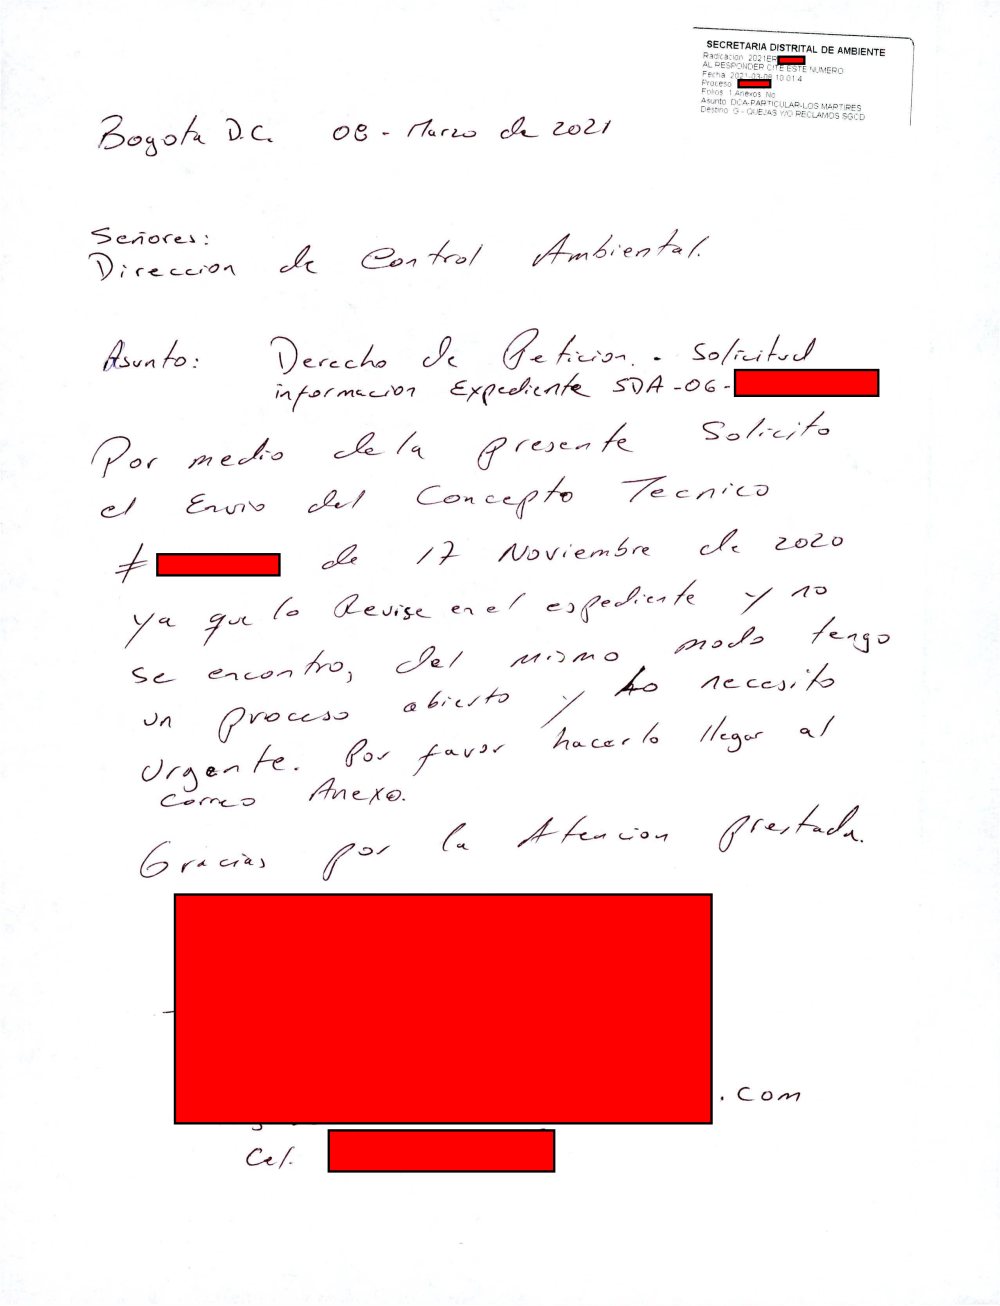 SECRETARIA DISTRITAL DE AMBIENTE
Radicación 2021ER
AL RESPONDER CITE ESTE NUMERO
Fecha 2021-03-08 10:01:4
Proceso
Folios 1 Anexos No
Asunto DCA-PARTICULAR-LOS MARTIRES
Destino G - QUEJAS Y/O RECLAMOS SGCD
Bogota D.C. 08 - Marzo de 2021
Señores:
Direccion de Control Ambiental.
Asunto: Derecho de Peticion. - Solicitud
informacion Expediente SDA-06-
Por medio de la presente Solicito
el Envio del Concepto Tecnico
# de 17 Noviembre de 2020
ya que lo Revise en el espediente y no
se encontro, del mismo modo tengo
un proceso abierto y lo necesito
Urgente. Por favor hacerlo llegar al
correo Anexo.
Gracias por la Atencion prestada.
.com
Cel.